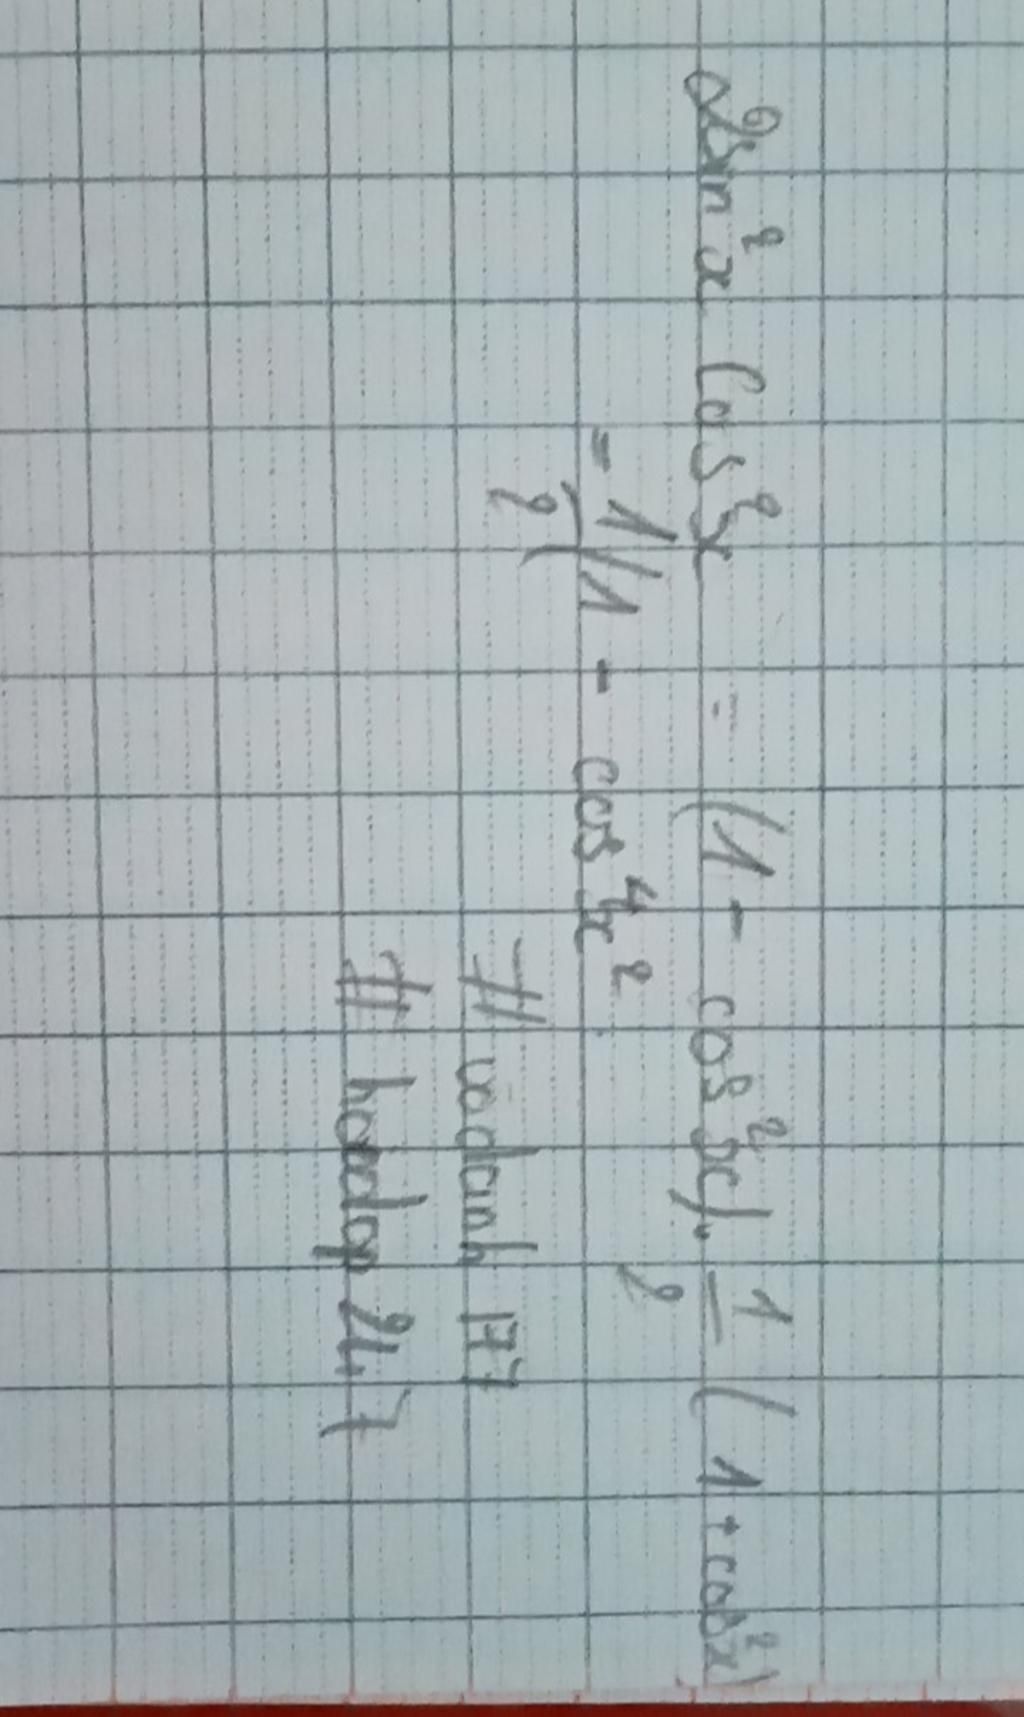 2sin²x cos²x = (1 - cos²x). 1/2 (1 + cos²x)
= 1/2 (1 - cos⁴x²
# vadanh 177
# hoadop 24,7